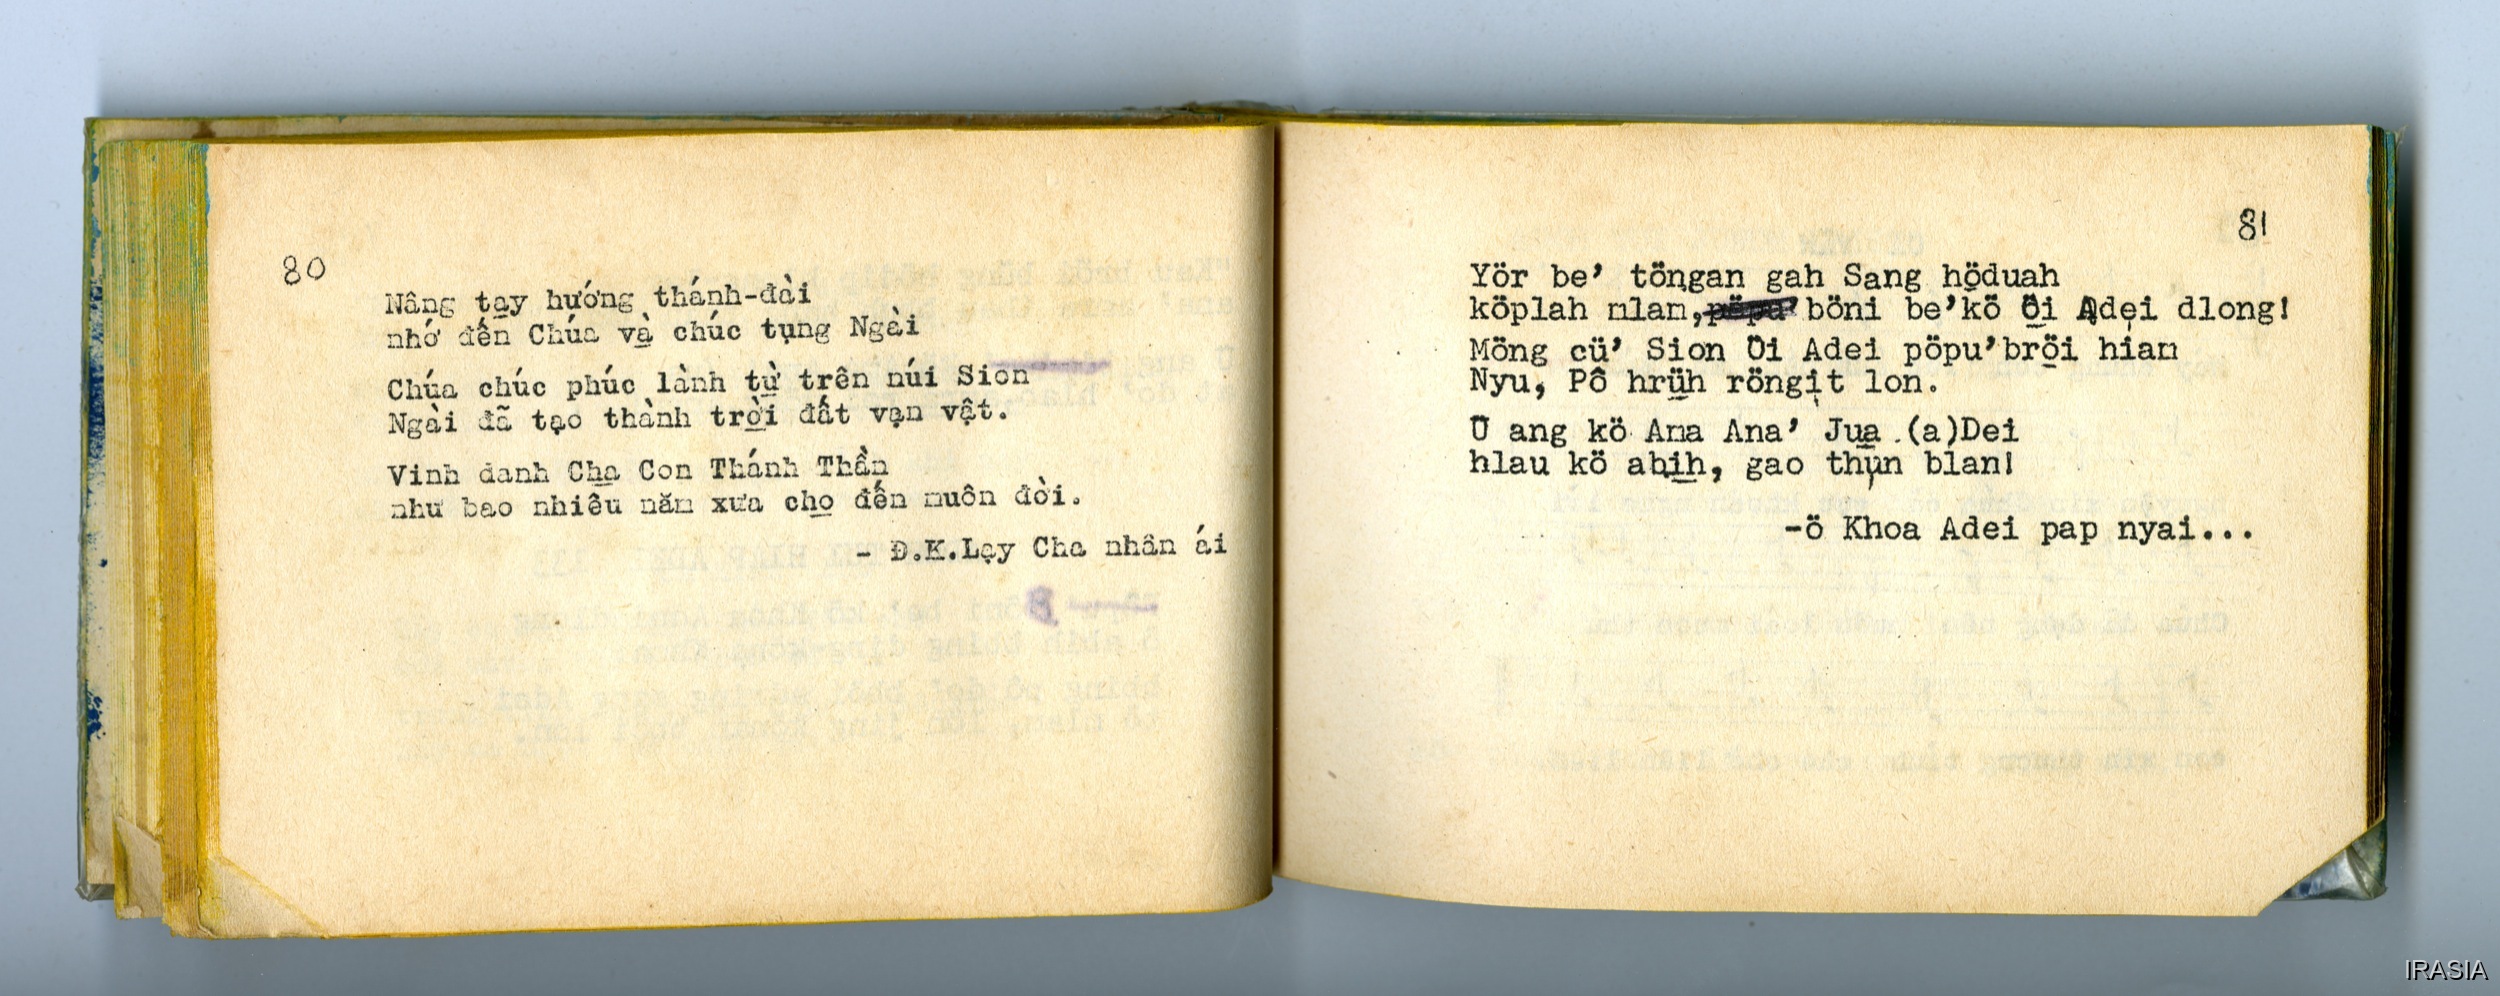 80
Nâng tay hướng thánh-đài
nhớ đến Chúa và chúc tụng Ngài
Chúa chúc phúc lành từ trên núi Sion
Ngài đã tạo thành trời đất vạn vật.
Vinh danh Cha Con Thánh Thần
như bao nhiêu năm xưa cho đến muôn đời.
- Đ.K.Lạy Cha nhân ái
81
Yör be' töngan gah Sang höduah
köplah mlam, böni be'kö Öi Adei dlong!
Möng cü' Sion Öi Adei pöpu'bröi hiam
Nyu, Pô hrüh röngit lon.
Ü ang kö Ama Ana' Jua (a)Dei
hlau kö abih, gao thun blan!
-ö Khoa Adei pap nyai...
IRASIA